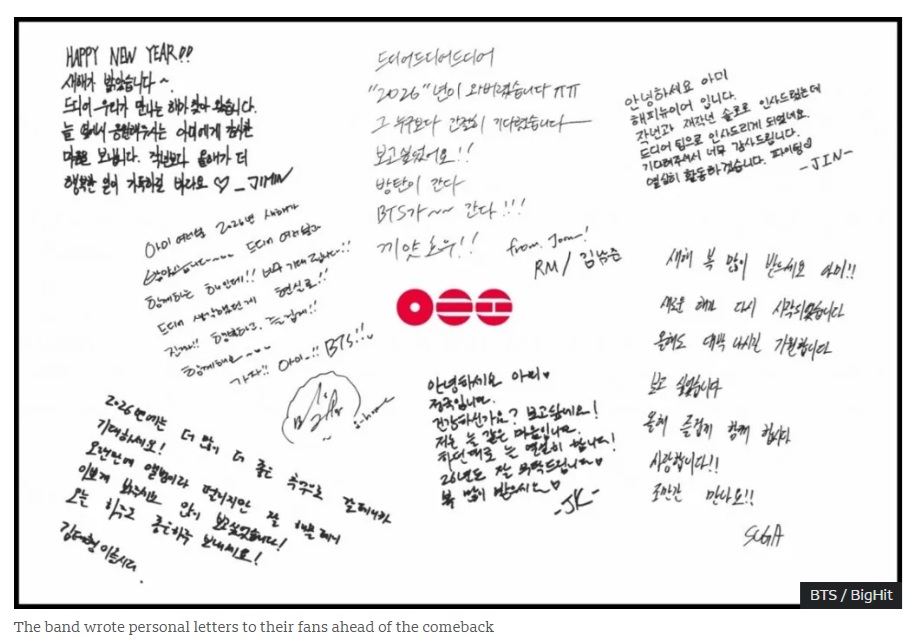 HAPPY NEW YEAR!!
새해가 밝았습니다~
드디어 우리가 만나는 해가 찾아 왔습니다.
늘 옆에서 응원해주시는 아미에게 감사한
마음을 보냅니다. 작년보다 올해가 더
행복한 일이 가득하길 바라요 ♡ _JIMIN
드디어드디어드디어
"2026"년이 와버렸습니다 ㅠㅠ
그 누구보다 간절히 기다렸습니다
보고싶었어요!!
방탄이 간다
BTS가~~ 간다!!!
끼얏호우!!
from. Joon!
RM / 김남준
안녕하세요 아미
해피뉴이어 입니다.
작년과 재작년 솔로로 인사드렸는데
드디어 팀으로 인사드리게 되었네요.
기다려주셔서 너무 감사드립니다.
열심히 활동하겠습니다. 파이팅♡
-JIN-
아미 여러분 2026년 새해가
밝았습니다~~~ 드디어 여러분과
함께하는 해인데!! 너무 기대됩니다!!
드디어 생각했던게 현실로!!
진짜!! 행복하고, 즐겁게!!
함께해요~~~
가자!! 아미!! BTS!!
새해 복 많이 받으세요 아미!!
새로운 해가 다시 시작되었습니다
올해도 대박 나시길 기원합니다
보고 싶었습니다
올해 즐겁게 함께 합시다
사랑합니다!!
조만간 만나요!!
SUGA
안녕하세요 아미♥
정국입니다.
건강하신가요? 보고싶네요!
저는 늘 같은 마음입니다.
하던대로 늘 열심히 합니다!
26년도 잘 부탁드립니다♡
복 많이 받으세요♡
-JK-
2026년에는 더 많이 더 좋은 추억으로 갈테니까
기대하세요!
오랜만에 앨범이라 떨리지만 잘 해볼테니
이쁘게 봐주세요 많이 보고싶었습니다!
오늘 하루도 좋은하루 보내세요!
김태형 이올시다.
BTS / BigHit
The band wrote personal letters to their fans ahead of the comeback